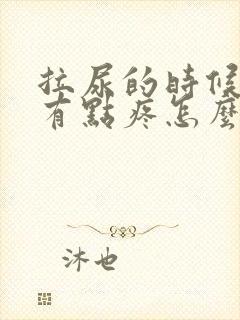 拉尿的時候
有點疼怎麼
沐也